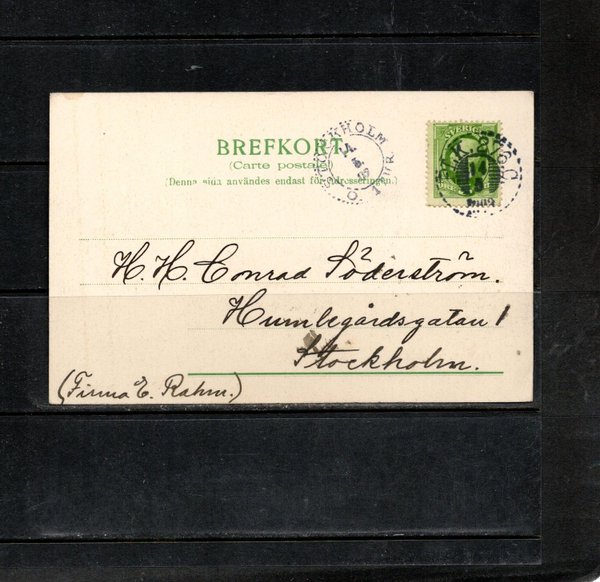 BREFKORT
(Carte postale)
(Denna sida användes endast för adresseringen.)
STOCKHOLM
1 TUR
SVERIGE
PLK
H. H. Conrad Söderström.
Humlegårdsgatan 1
Stockholm.
(Firma E. Rahm.)